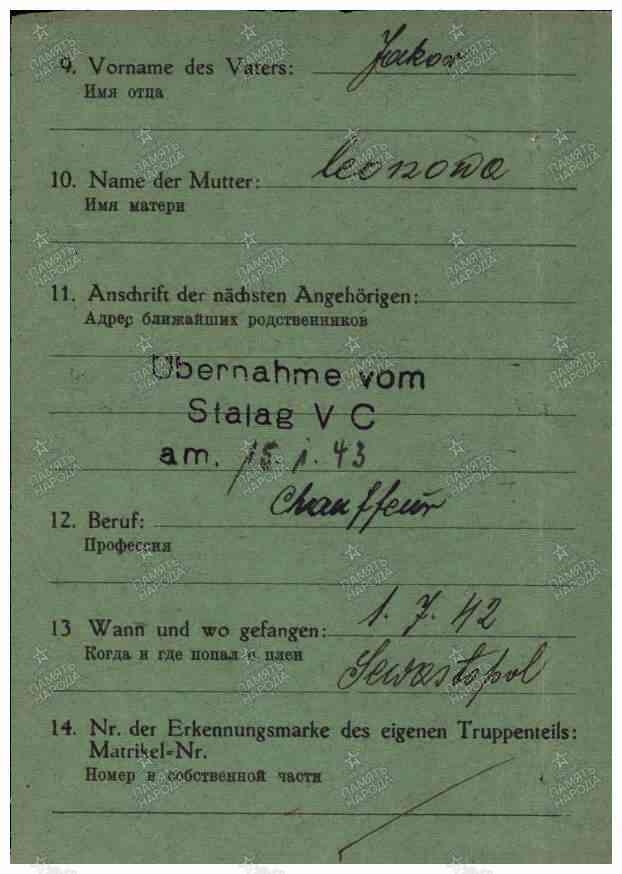 9. Vorname des Vaters: Jakov
Имя отца
10. Name der Mutter: Leonowa
Имя матери
11. Anschrift der nächsten Angehörigen:
Адрес ближайших родственников
Übernahme vom
Stalag V C
am. 15. 1. 43
12. Beruf: Chauffeur
Профессия
13 Wann und wo gefangen: 1. 7. 42
Когда и где попал в плен Sewastopol
14. Nr. der Erkennungsmarke des eigenen Truppenteils:
Matrikel-Nr.
Номер в собственной части